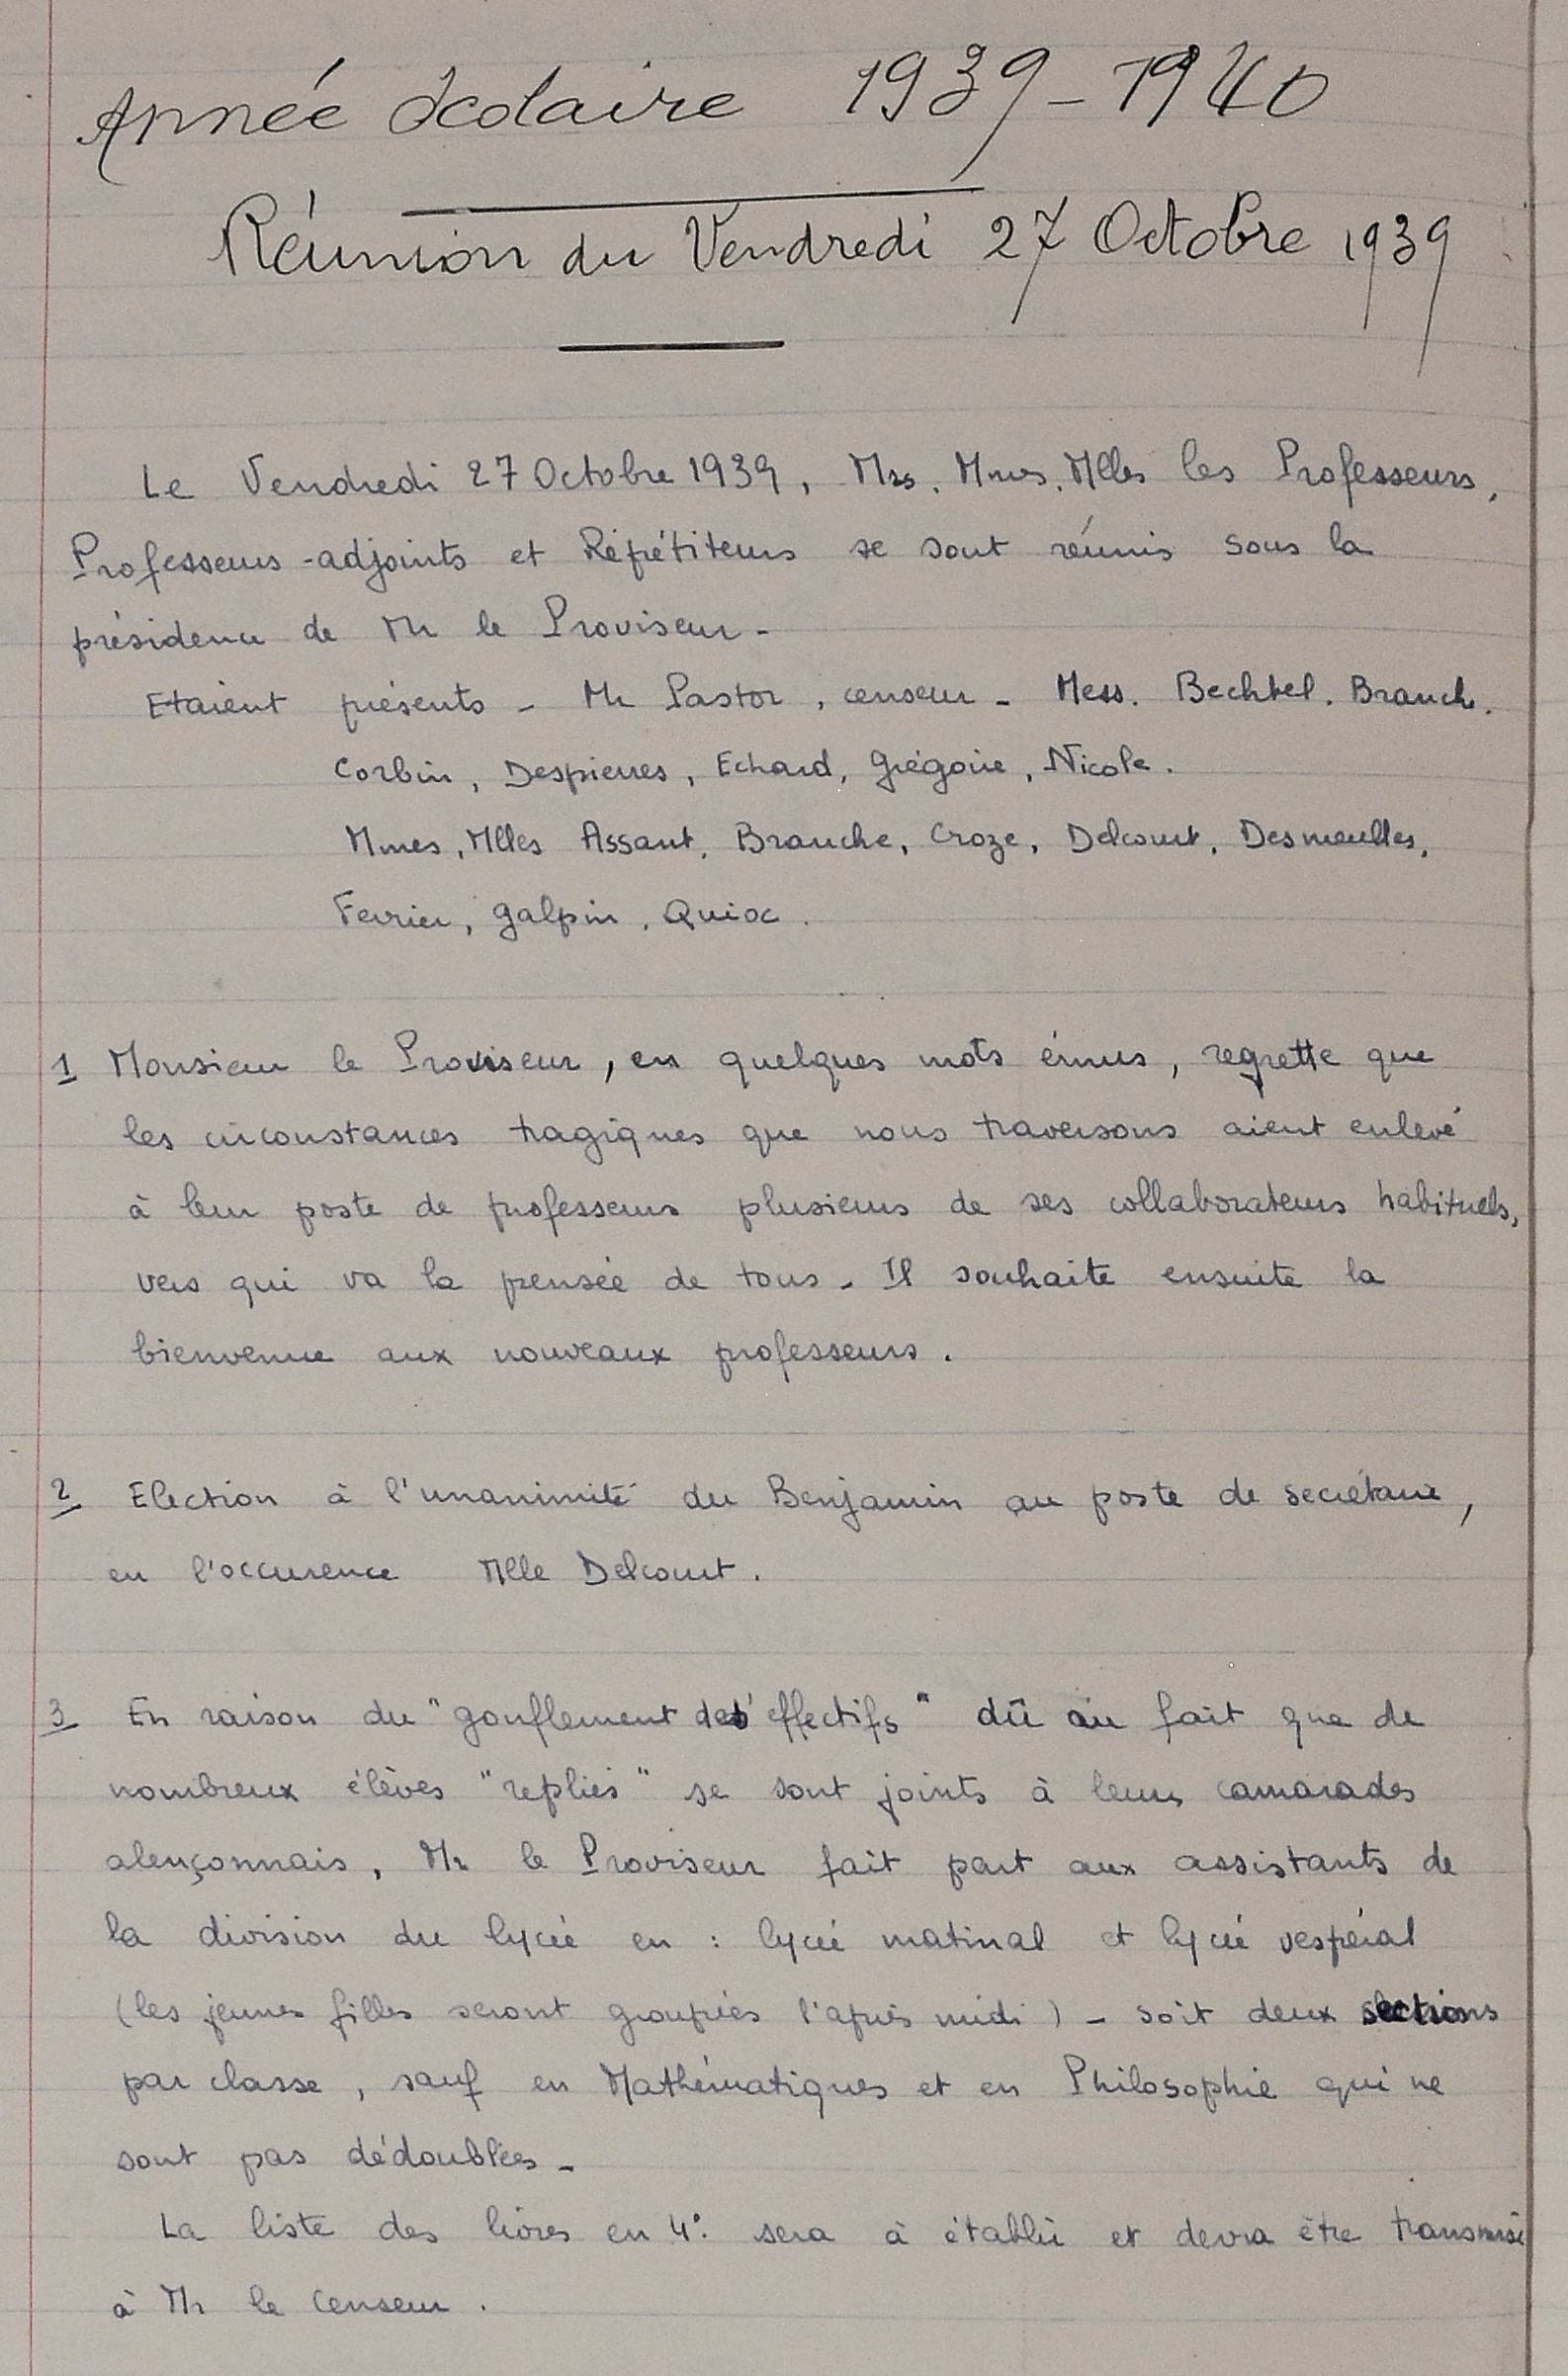 Année Scolaire 1939-1940
Réunion du Vendredi 27 Octobre 1939
Le Vendredi 27 Octobre 1939, Mrs. Mmes. Mlles les Professeurs,
Professeurs-adjoints et Répétiteurs se sont réunis sous la
présidence de Mr le Proviseur-
Etaient présents - Mr Pastor, censeur - Mess. Bechtel. Branch.
Corbin, Despierres, Echard, Grégoire, Nicole.
Mmes, Mlles Assant, Branche, Croze, Delcourt, Desmeulles,
Ferrier, Galpin, Quioc.
1 Monsieur le Proviseur, en quelques mots émus, regrette que
les circonstances tragiques que nous traversons aient enlevé
à leur poste de professeurs plusieurs de ses collaborateurs habituels,
vers qui va la pensée de tous - Il souhaite ensuite la
bienvenue aux nouveaux professeurs.
2 Election à l'unanimité du Benjamin au poste de secrétaire,
en l'occurence Mlle Delcourt.
3 En raison du "gonflement des effectifs" dû au fait que de
nombreux élèves "repliés" se sont joints à leurs camarades
alençonnais, Mr le Proviseur fait part aux assistants de
la division du lycée en : lycée matinal et lycée vespéral
(les jeunes filles seront groupées l'après midi) - soit deux sections
par classe, sauf en Mathématiques et en Philosophie qui ne
sont pas dédoublées -
La liste des livres en 4e. sera à établir et devra être transmise
à Mr le Censeur.